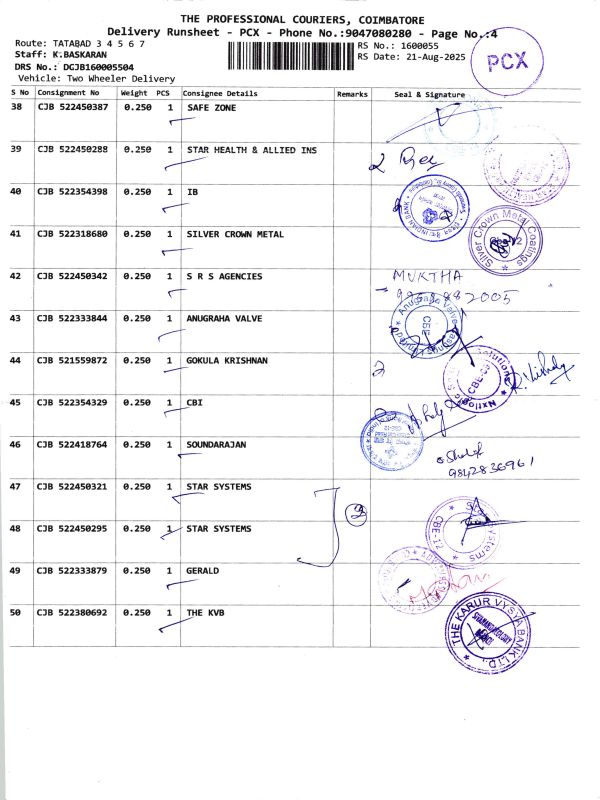 THE PROFESSIONAL COURIERS, COIMBATORE
Delivery Runsheet - PCX - Phone No.:9047080280 - Page No.:4
Route: TATABAD 3 4 5 6 7
Staff: K.BASKARAN
DRS No.: DGJB1600055504
Vehicle: Two Wheeler Delivery
RS No.: 1600055
RS Date: 21-Aug-2025
PCX
S No Consignment No Weight PCS Consignee Details Remarks Seal & Signature
38 CJB 522450387 0.250 1 SAFE ZONE
39 CJB 522450288 0.250 1 STAR HEALTH & ALLIED INS
40 CJB 522354398 0.250 1 IB
41 CJB 522318680 0.250 1 SILVER CROWN METAL
Silver Crown Metal Coatings
42 CJB 522450342 0.250 1 S R S AGENCIES MUKTHA
43 CJB 522333844 0.250 1 ANUGRAHA VALVE
CBE
44 CJB 521559872 0.250 1 GOKULA KRISHNAN 2
45 CJB 522354329 0.250 1 CBI
46 CJB 522418764 0.250 1 SOUNDARAJAN
9842836961
47 CJB 522450321 0.250 1 STAR SYSTEMS
2
48 CJB 522450295 0.250 1 STAR SYSTEMS
CBE-17
49 CJB 522333879 0.250 1 GERALD
50 CJB 522380692 0.250 1 THE KVB
THE KARUR VYSYA BANK LTD.